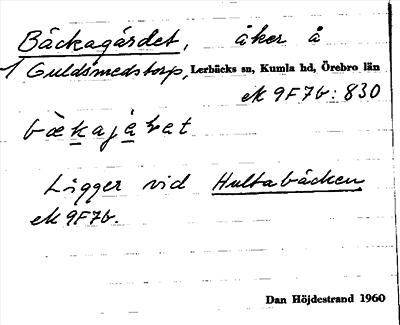 Bäckagärdet, åker å
Guldsmedstorp, Lerbäcks sn, Kumla hd, Örebro län
ek 9F7b: 830
bɛ̀kajäḷat
Ligger vid Hultabäcken
ek 9F7b.
Dan Höjdestrand 1960